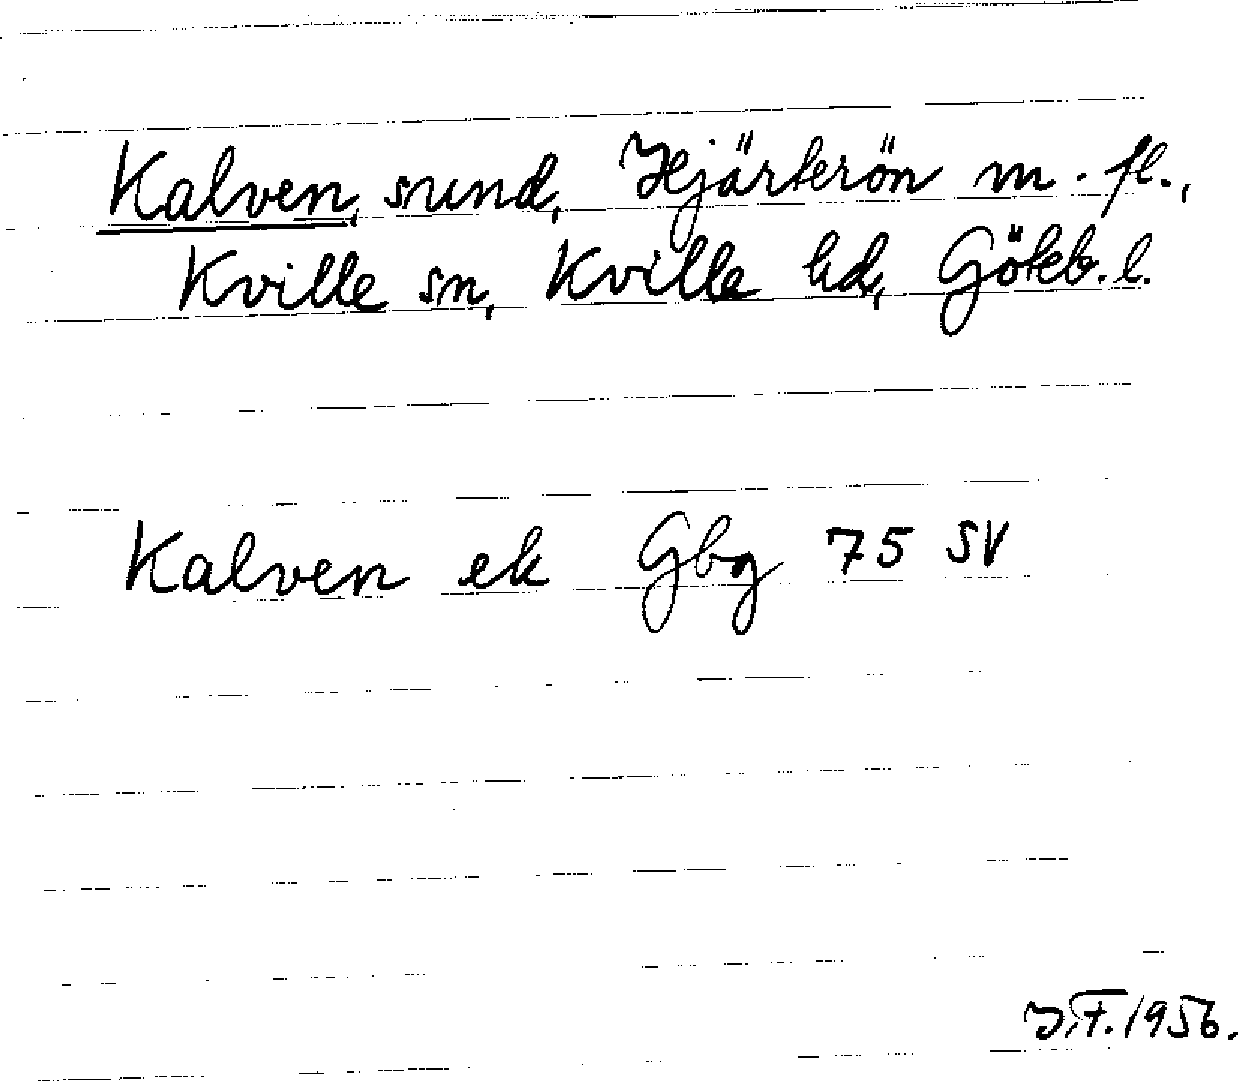 Kalven, sund, Hjärterön m. fl.,
Kville sn, Kville hd, Göteb. l.
Kalven ek Gbg 75 SV
J.F. 1956.